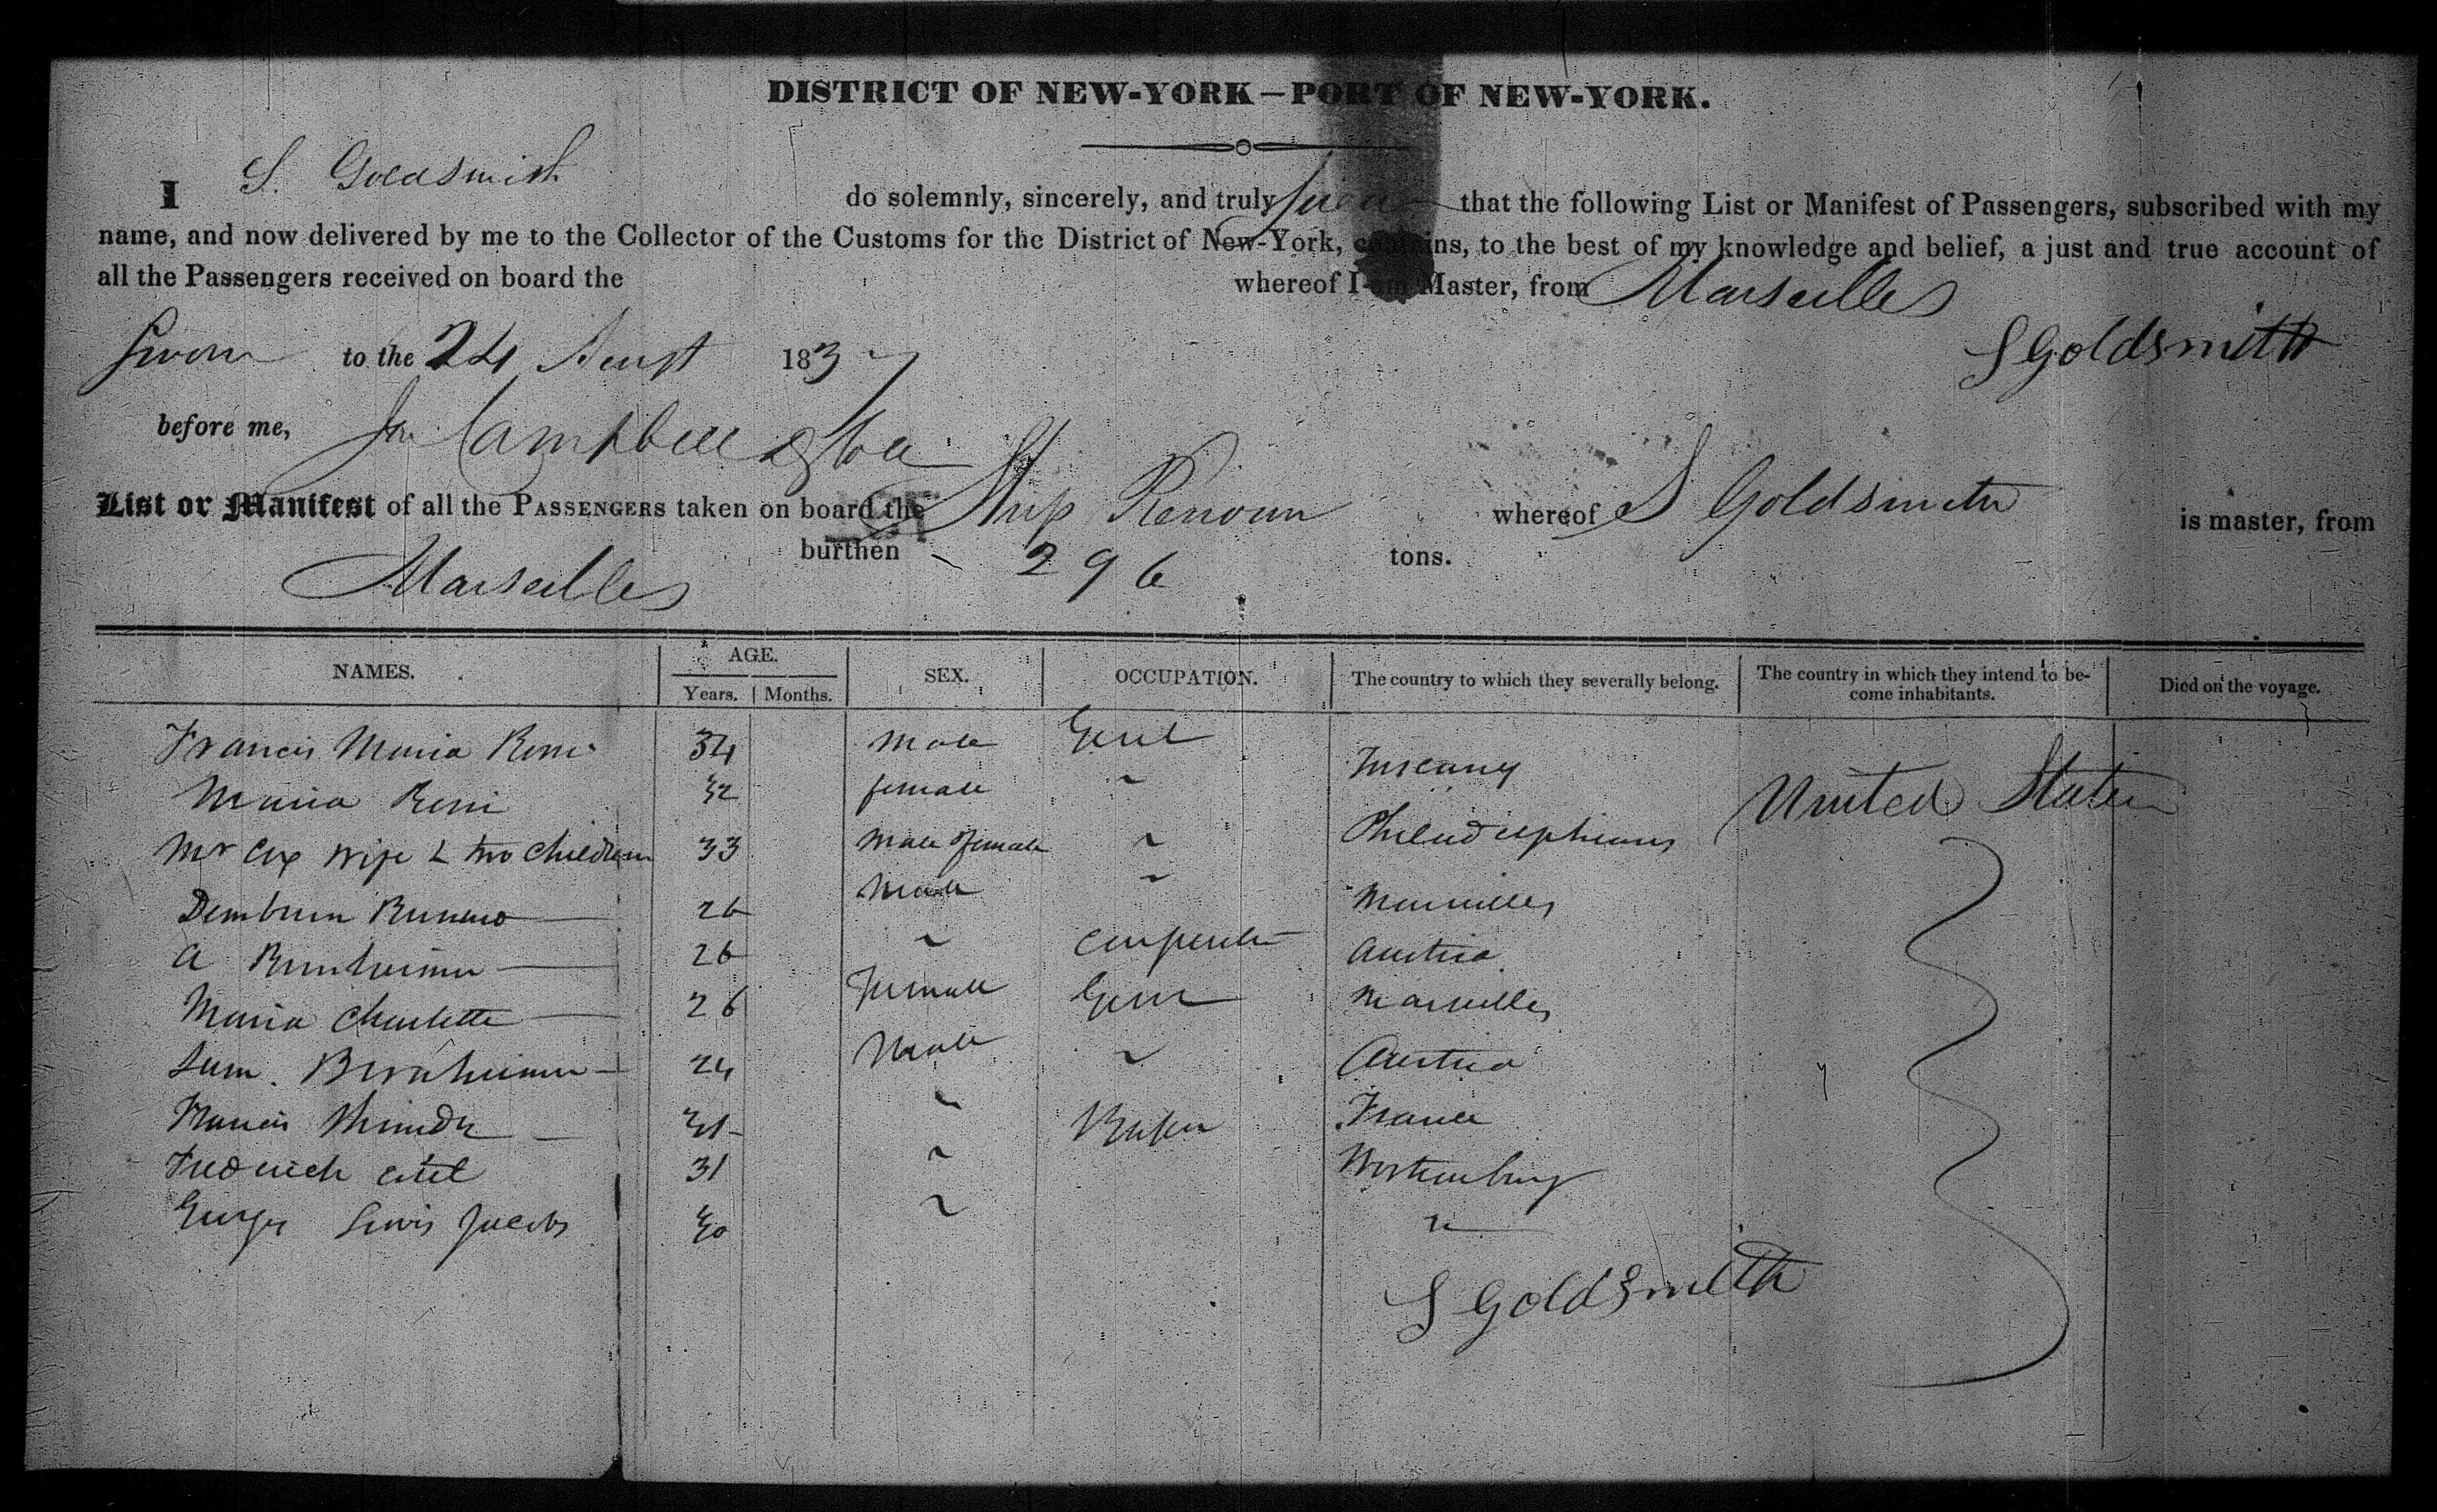 DISTRICT OF NEW-YORK—PORT OF NEW-YORK.
I S. Goldsmith do solemnly, sincerely, and truly swear that the following List or Manifest of Passengers, subscribed with my
name, and now delivered by me to the Collector of the Customs for the District of New-York, contains, to the best of my knowledge and belief, a just and true account of
all the Passengers received on board the whereof I am Master, from Marseilles
Sworn to the 24 August 1837 S Goldsmith
before me, Campbell
List or Manifest of all the PASSENGERS taken on board the Ship Renown whereof S Goldsmith is master, from
Marseilles burthen 296 tons.
NAMES. AGE. SEX. OCCUPATION. The country to which they severally belong. The country in which they intend to be- Died on the voyage.
Years. Months. come inhabitants.
Francis Maria 34 Male Gent Tuscany United States
Maria 32 female ~
Mr Cox Wife & two Children 33 Male & female ~ Philadelphians
26 Male ~ Marseilles
A 26 ~ Carpenter Austria
Maria Charlotte 26 Female Marseilles
Sam. Bernheimer 24 Male ~ Austria
Francis ~ Baker France
Frederick 31 ~ Wirtemburg
George Lewis Jacobs 30 ~
S Goldsmith